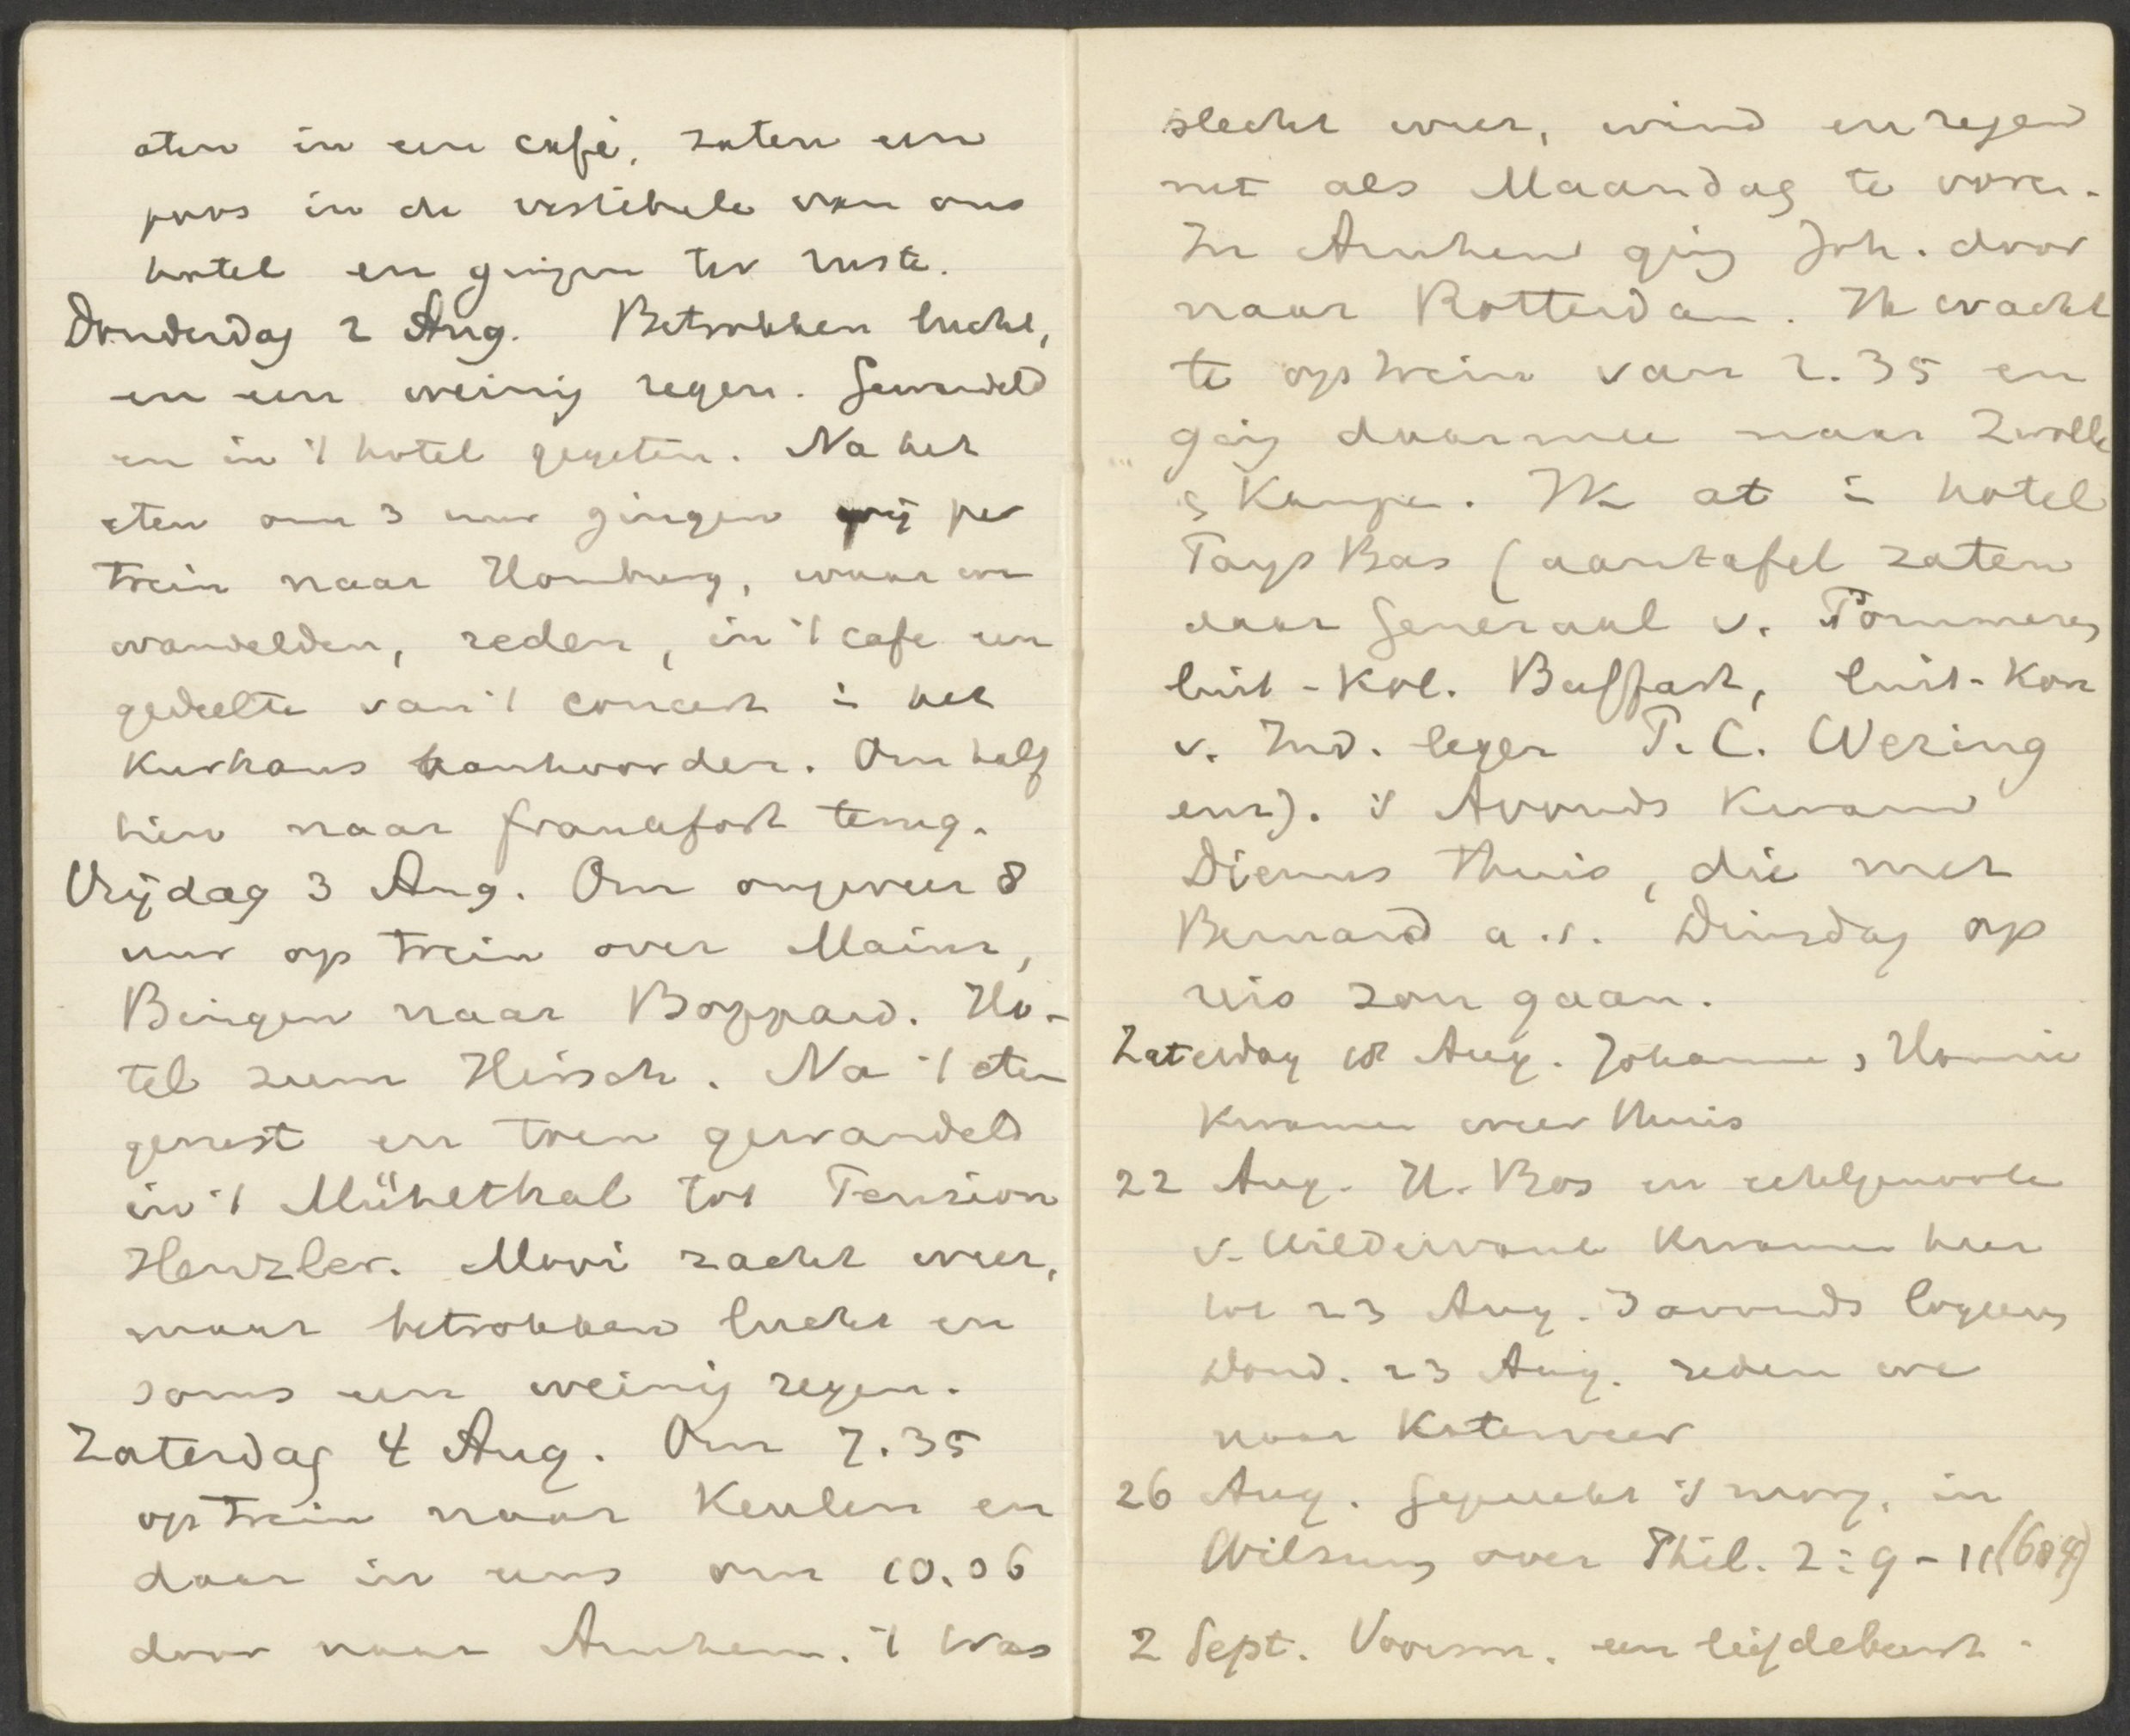 aten in een café, zaten een
poos in de vestibule van ons
hotel en gingen ter ruste.
Donderdag 2 Aug. Betrokken lucht,
en een weinig regen. Gewandeld
en in 't hotel gegeten. Na het
eten om 3 uur gingen wij per
trein naar Homburg, waar we
wandelden, reden, in 't cafe een
gedeelte van 't concert i het
Kurhaus aanhoorden. Om half
tien naar Frankfort terug.
Vrijdag 3 Aug. Om ongeveer 8
uur op trein over Mainz,
Bingen naar Boppard. Ho-
tel zum Hirsch. Na 't eten
gerust en toen gewandeld
in 't Mühlthal tot Pension
Henzler. Mooi zacht weer,
maar betrokken lucht en
soms een weinig regen.
Zaterdag 4 Aug. Om 7.35
op trein naar Keulen en
daar in ons om 10.06
door naar Arnhem. 't Was
slecht weer, wind en regen
net als Maandag te voren.
In Arnhem ging Joh. door
naar Rotterdam. Ik wacht
te op trein van 2.35 en
ging daarmee naar Zwolle
& Kampen. Ik at i hotel
Pays Bas (aan tafel zaten
daar Generaal v. Pommeren,
luit-Kol. Buffart, luit-Kon
v. Ind. leger P. C. Wering
enz). 's Avonds kwam
Dienus thuis, die met
Bernard a.s. Dinsdag op
reis zou gaan.
Zaterdag 18 Aug. Johanna, Hannie
kwamen weer thuis
22 Aug. H. Bos en echtgenoote
v. Wildervank kwamen hier
tot 23 Aug. 's avonds logeeren
Dond. 23 Aug. reden we
naar Katerveer
26 Aug. Gepreekt 's morg. in
Wilsum over Phil. 2:9-11 (604)
2 Sept. Voorm. een lijdebeurt.